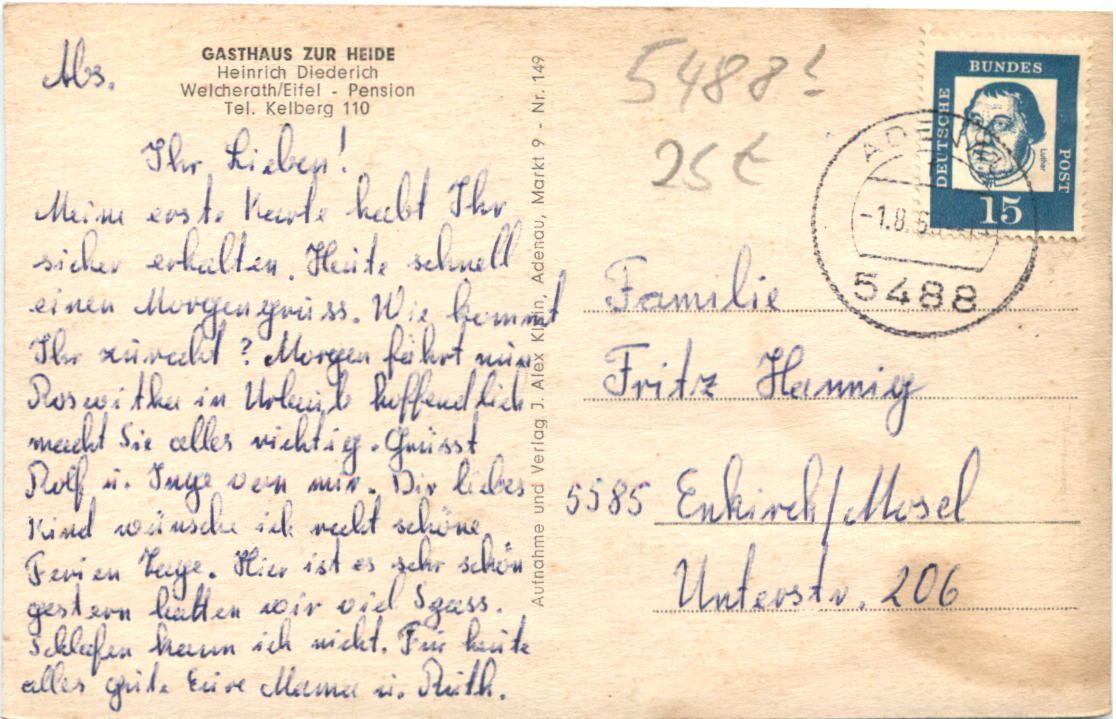 Abs.
GASTHAUS ZUR HEIDE
Heinrich Diederich
Welcherath/Eifel - Pension
Tel. Kelberg 110
Ihr Lieben!
Meine erste Karte habt Ihr
sicher erhalten. Heute schnell
einen Morgengruss. Wie kommt
Ihr zurecht? Morgen fährt nun
Roswitha in Urlaub hoffendlich
macht Sie alles richtig. Grüsst
Rolf u. Inge von mir. Dir liebes
Kind wünsche ich recht schöne
Ferien Tage. Hier ist es sehr schön
gestern hatten wir viel Spass.
Schlafen kann ich nicht. Für heute
alles gute Eure Mama u. Ruth.
Aufnahme und Verlag J. Alex Klein, Adenau, Markt 9 - Nr. 149
5488!
25 t
DEUTSCHE
BUNDES
POST
Luther
15
ADENAU
-1.8.6
5488
Familie
Fritz Hannig
5585 Enkirch/Mosel
Unterstr. 206